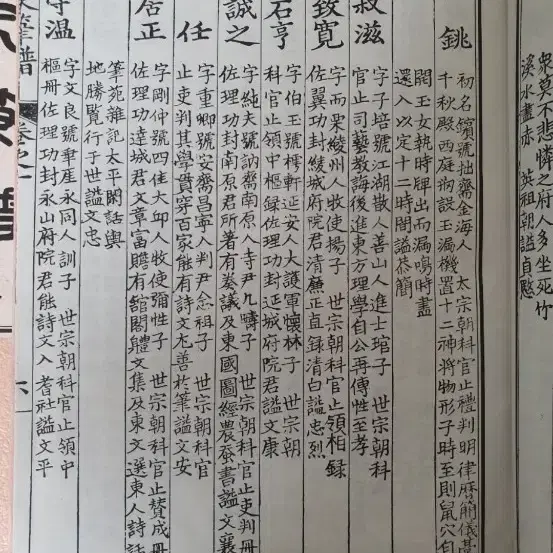 衆莫不悲憐之府人多坐死竹
溪水盡赤 英祖朝謚貞愍
銚
初名鑌號拙齋金海人 太宗朝科官止禮判明律曆簡儀
千秋殿西庭剏設玉漏機置十二神將物形子時至則鼠穴自
開玉女執時牌出而漏鳴時盡
還入以定十二時間謚恭簡
叔滋
字子培號江湖散人善山人進士琯子 世宗朝科
官止司藝教誨後進東方理學自公再傳性至孝
致寬
字而栗綾州人牧使揚子 世宗朝科官止領相錄
佐翼功封綾城府院君清廉正直錄清白謚忠烈
石亨
字伯玉號樗軒延安人大護軍懷林子 世宗朝
科官止領中樞錄佐理功封延城府院君謚文康
誠之
字純夫號訥齋南原人寺尹九疇子 世宗朝科官止吏判冊
佐理功封南原君所著有奏議及東國圖經農蚕書謚文襄
任
字重卿號安齋昌寧人判尹念祖子 世宗朝科官
止吏判其學貫穿百家能有詩文尤善於筆謚文安
居正
字剛仲號四佳大邱人牧使彌性子 世宗朝科官止贊成冊
佐理功達城君文章富贍有舘閣軆文集及東文選東人詩話
筆苑雜記太平閑話輿
地勝覽行于世謚文忠
守温
字文良號乖崖永同人訓子 世宗朝科官止領中
樞冊佐理功封永山府院君能詩文入 耆社謚文平
筆譜 卷之一
六
譜